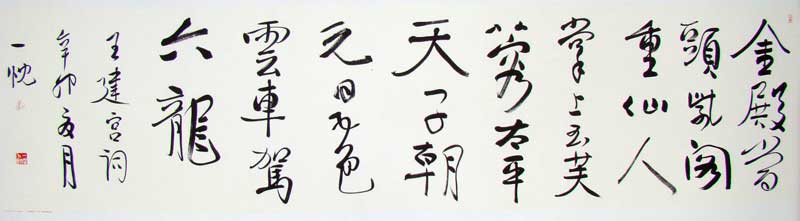 金殿當
頭紫阁
重仙人
掌上玉芙
蓉太平
天子朝
元日五色
雲車駕
六龍
王建宫词
辛卯夏月
一